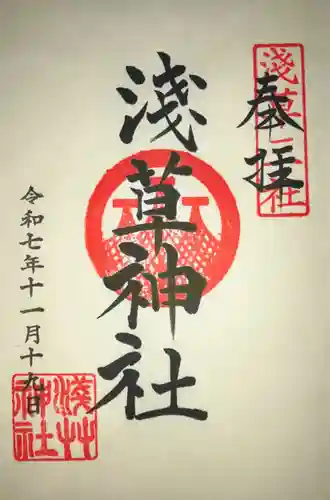 奉拝
淺草三社
淺草神社
令和七年十一月十九日
淺草神社